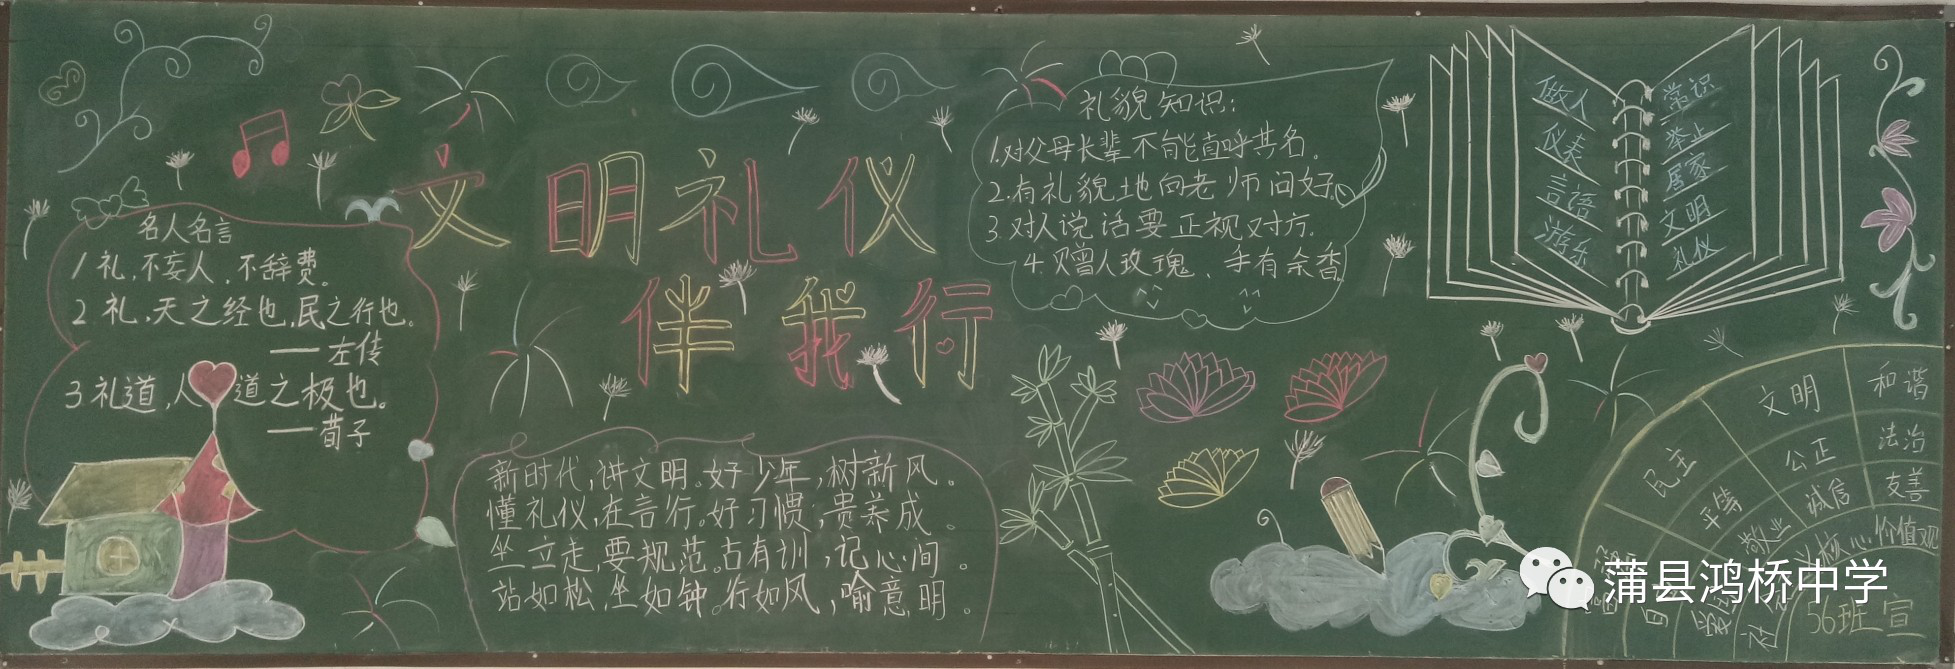 文明礼仪
伴我行
名人名言
1礼,不妄人,不辞费。
2.礼,天之经也,民之行也。
——左传
3礼道,人道之极也。
——荀子
新时代,讲文明。好少年,树新风。
懂礼仪,在言行。好习惯,贵养成。
坐立走,要规范。古有训,记心间。
站如松,坐如钟。行如风,喻意明。
礼貌知识:
1.对父母长辈不能直呼其名。
2.有礼貌地向老师问好。
3.对人说话要正视对方.
4.赠人玫瑰、手有余香
做人
仪表
言语
游乐
常识
举止
居家
文明
礼仪
民主
文明
和谐
平等
公正
法治
敬业
诚信
友善
核心价值观
56班宣
蒲县鸿桥中学